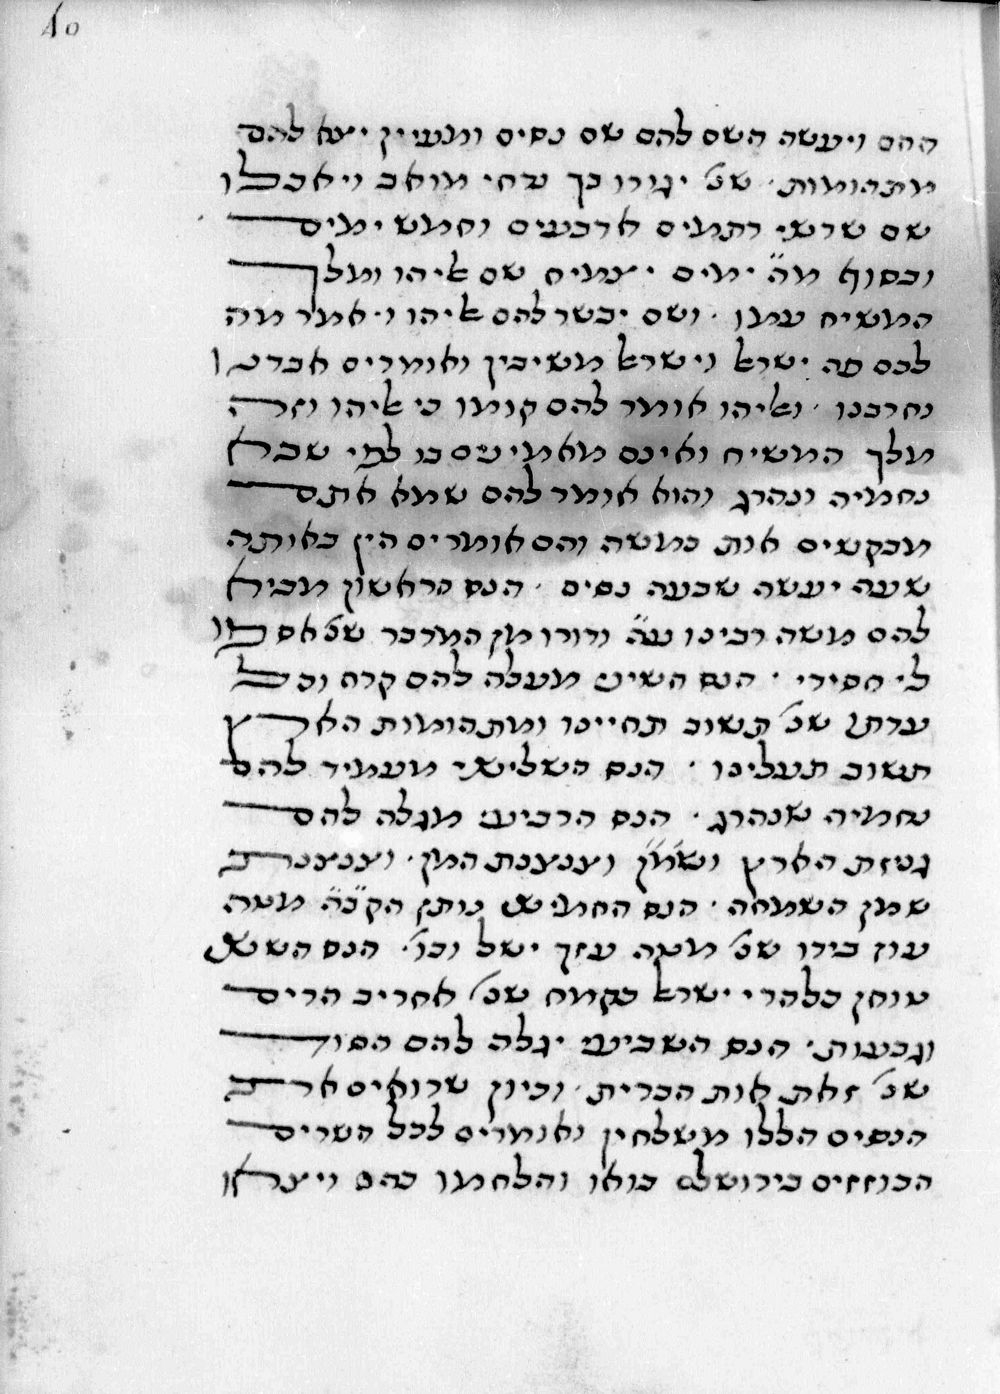 40
ההם ויעשה השם להם שם נסים ומעיין יצא להם
מתהומות · שנ׳ יגורו בך נדחי מואב ויאכלו
שם שרשי רתמים ארבעים וחמש ימים
ובסוף מ״ה ימים יצמיח שם אליהו ומלך
המשיח עמו · ושם יבשר להם אליהו ויאמר מה
לכם פה ישראל וישראל משיבין ואומרים אבדנו
נחרבנו · ואליהו אומר להם קומו כי אליהו וזה
מלך המשיח ואינם מאמינים בו לפי שבא
נחמיה ונהרג והוא אומר להם שמא אתם
מבקשים אות כמשה והם אומרים הין באותה
שעה יעשה שבעה נסים · הנס הראשון מביא
להם משה רבינו ע״ה ודורו מן המדבר שנ׳ אספו
לי חסידי · הנס השיני מעלה להם קרח וכל
עדתו שנ׳ תשוב תחיינו ומתהומות הארץ
תשוב תעלינו · הנס השלישי מעמיד להם
נחמיה שנהרג · הנס הרביעי מגלה להם
גניזת הארץ וצנצנת המן · וצנצנת
שמן השמחה · הנס החמישי נותן הקב״ה מטה
עוז בידו שנ׳ מטה עזך ישל׳ וכו׳ · הנס הששי
טוחן כל הרי ישראל כקמח שנ׳ אחריב הרים
וגבעות · הנס השביעי יגלה להם הסוד
שנ׳ זאת אות הברית · וכיון שרואים את
הנסים הללו משלחין ואומרים לכל השרים
הבוזזים בירושלם בואו והלחמו בהם ויצאו